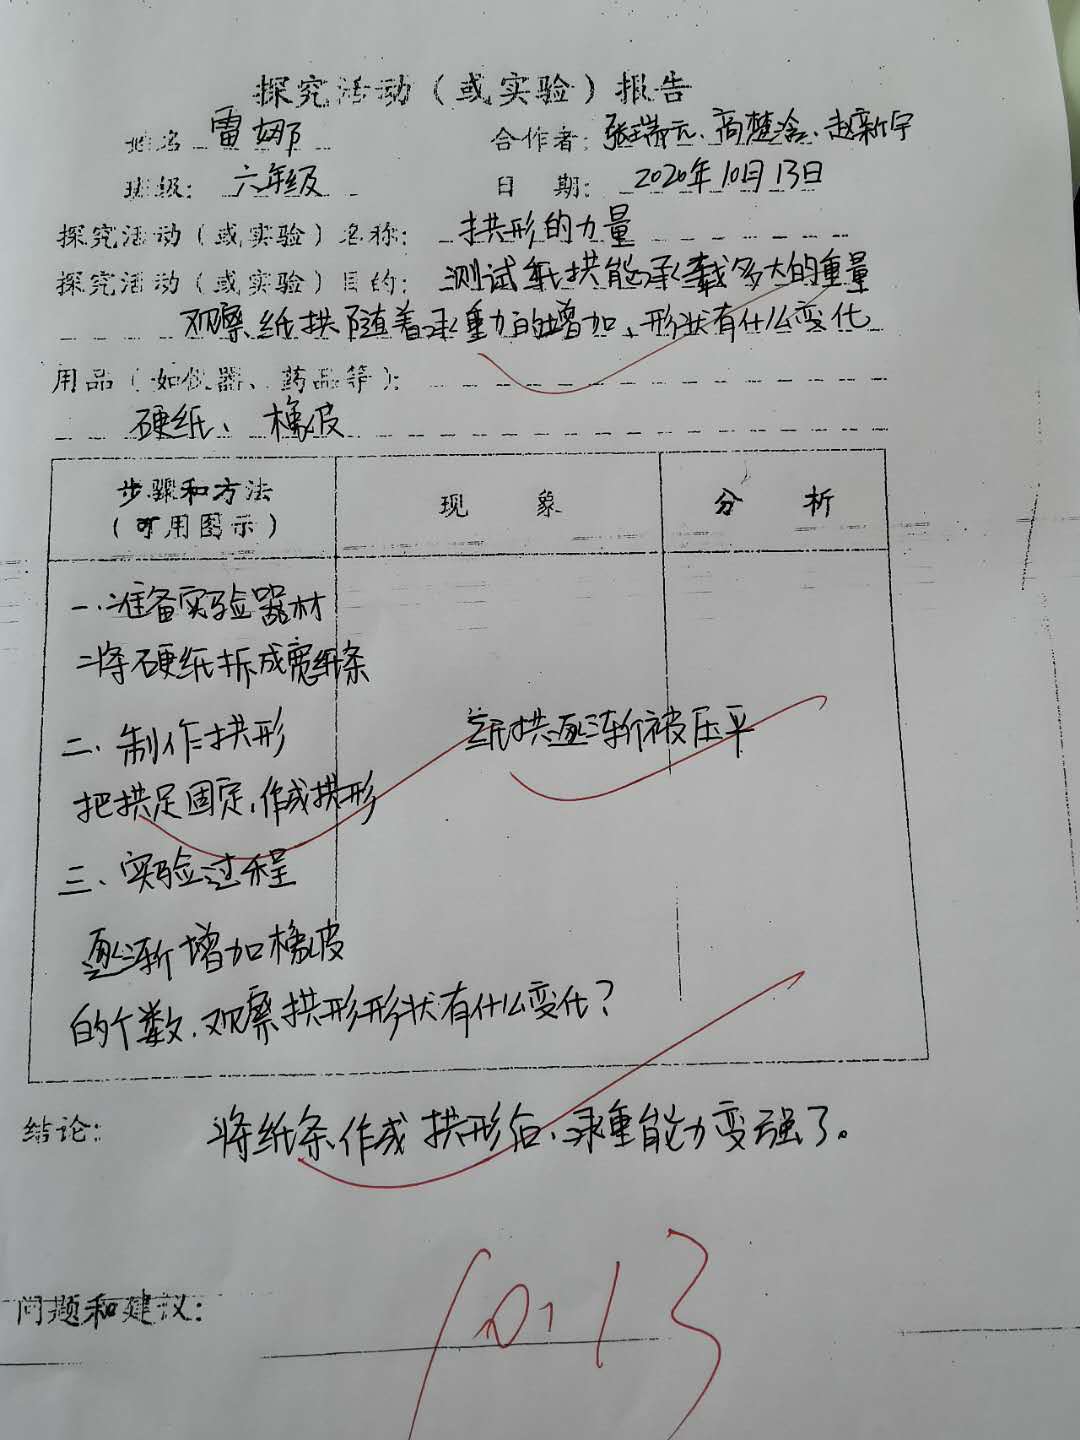 探究活动（或实验）报告
姓名 雷娜 合作者：张瑞元、高楚涵、赵新宇
班级：六年级 日 期：2020年10月13日
探究活动（或实验）名称：拱形的力量
探究活动（或实验）目的：测试纸拱能承载多大的重量
观察纸拱随着承重力的增加、形状有什么变化
用品（如仪器、药品等）：
硬纸、橡皮
步骤和方法 现 象 分 析
（可用图示）
一、准备实验器材
将硬纸拆成宽纸条
二、制作拱形 纸拱逐渐被压平
把拱足固定，作成拱形
三、实验过程
逐渐增加橡皮
的个数，观察拱形形状有什么变化？
结论： 将纸条作成拱形后、承重能力变强了。
问题和建议：
10.13